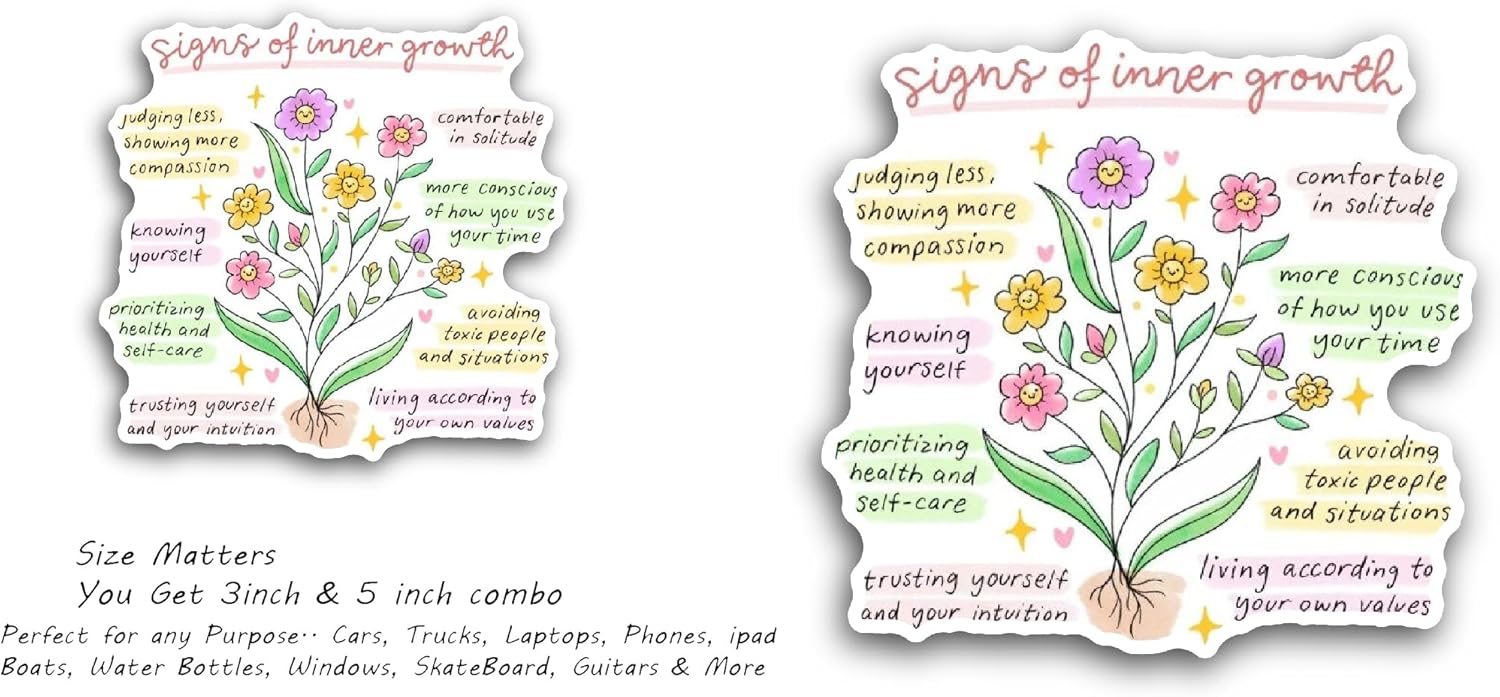 signs of inner growth
judging less,
showing more
compassion
comfortable
in solitude
more conscious
of how you use
your time
knowing
yourself
prioritizing
health and
self-care
avoiding
toxic people
and situations
trusting yourself
and your intuition
living according to
your own values
Size Matters
You Get 3inch & 5 inch combo
Perfect for any Purpose·· Cars, Trucks, Laptops, Phones, ipad
Boats, Water Bottles, Windows, SkateBoard, Guitars & More
signs of inner growth
judging less,
showing more
compassion
comfortable
in solitude
more conscious
of how you use
your time
knowing
yourself
prioritizing
health and
self-care
avoiding
toxic people
and situations
trusting yourself
and your intuition
living according to
your own values